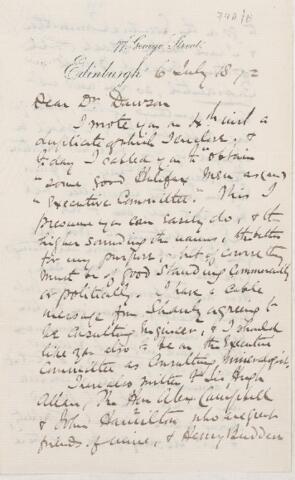 17 George Street.
Edinburgh 6 July 1872
Dear Dr. Dawson
I wrote you on 4th inst a
duplicate of which I enclose, &
today I cabled you to "obtain
"some good Halifax men as our
"Executive Committee." This I
presume you can easily do, & the
higher sounding the names, the better
for my purpose, but of course they
must be of good standing commercially
or politically. I have a cable
message from Shanly agreeing to
be Consulting Engineer, & I should
like you also to be on the Executive
Committee as Consulting Mineralogist.
I am also writing to Sir Hugh
Allan, The Hon Alex. Campbell
& John Hamilton who are great
friends of mine, & Henry Budden